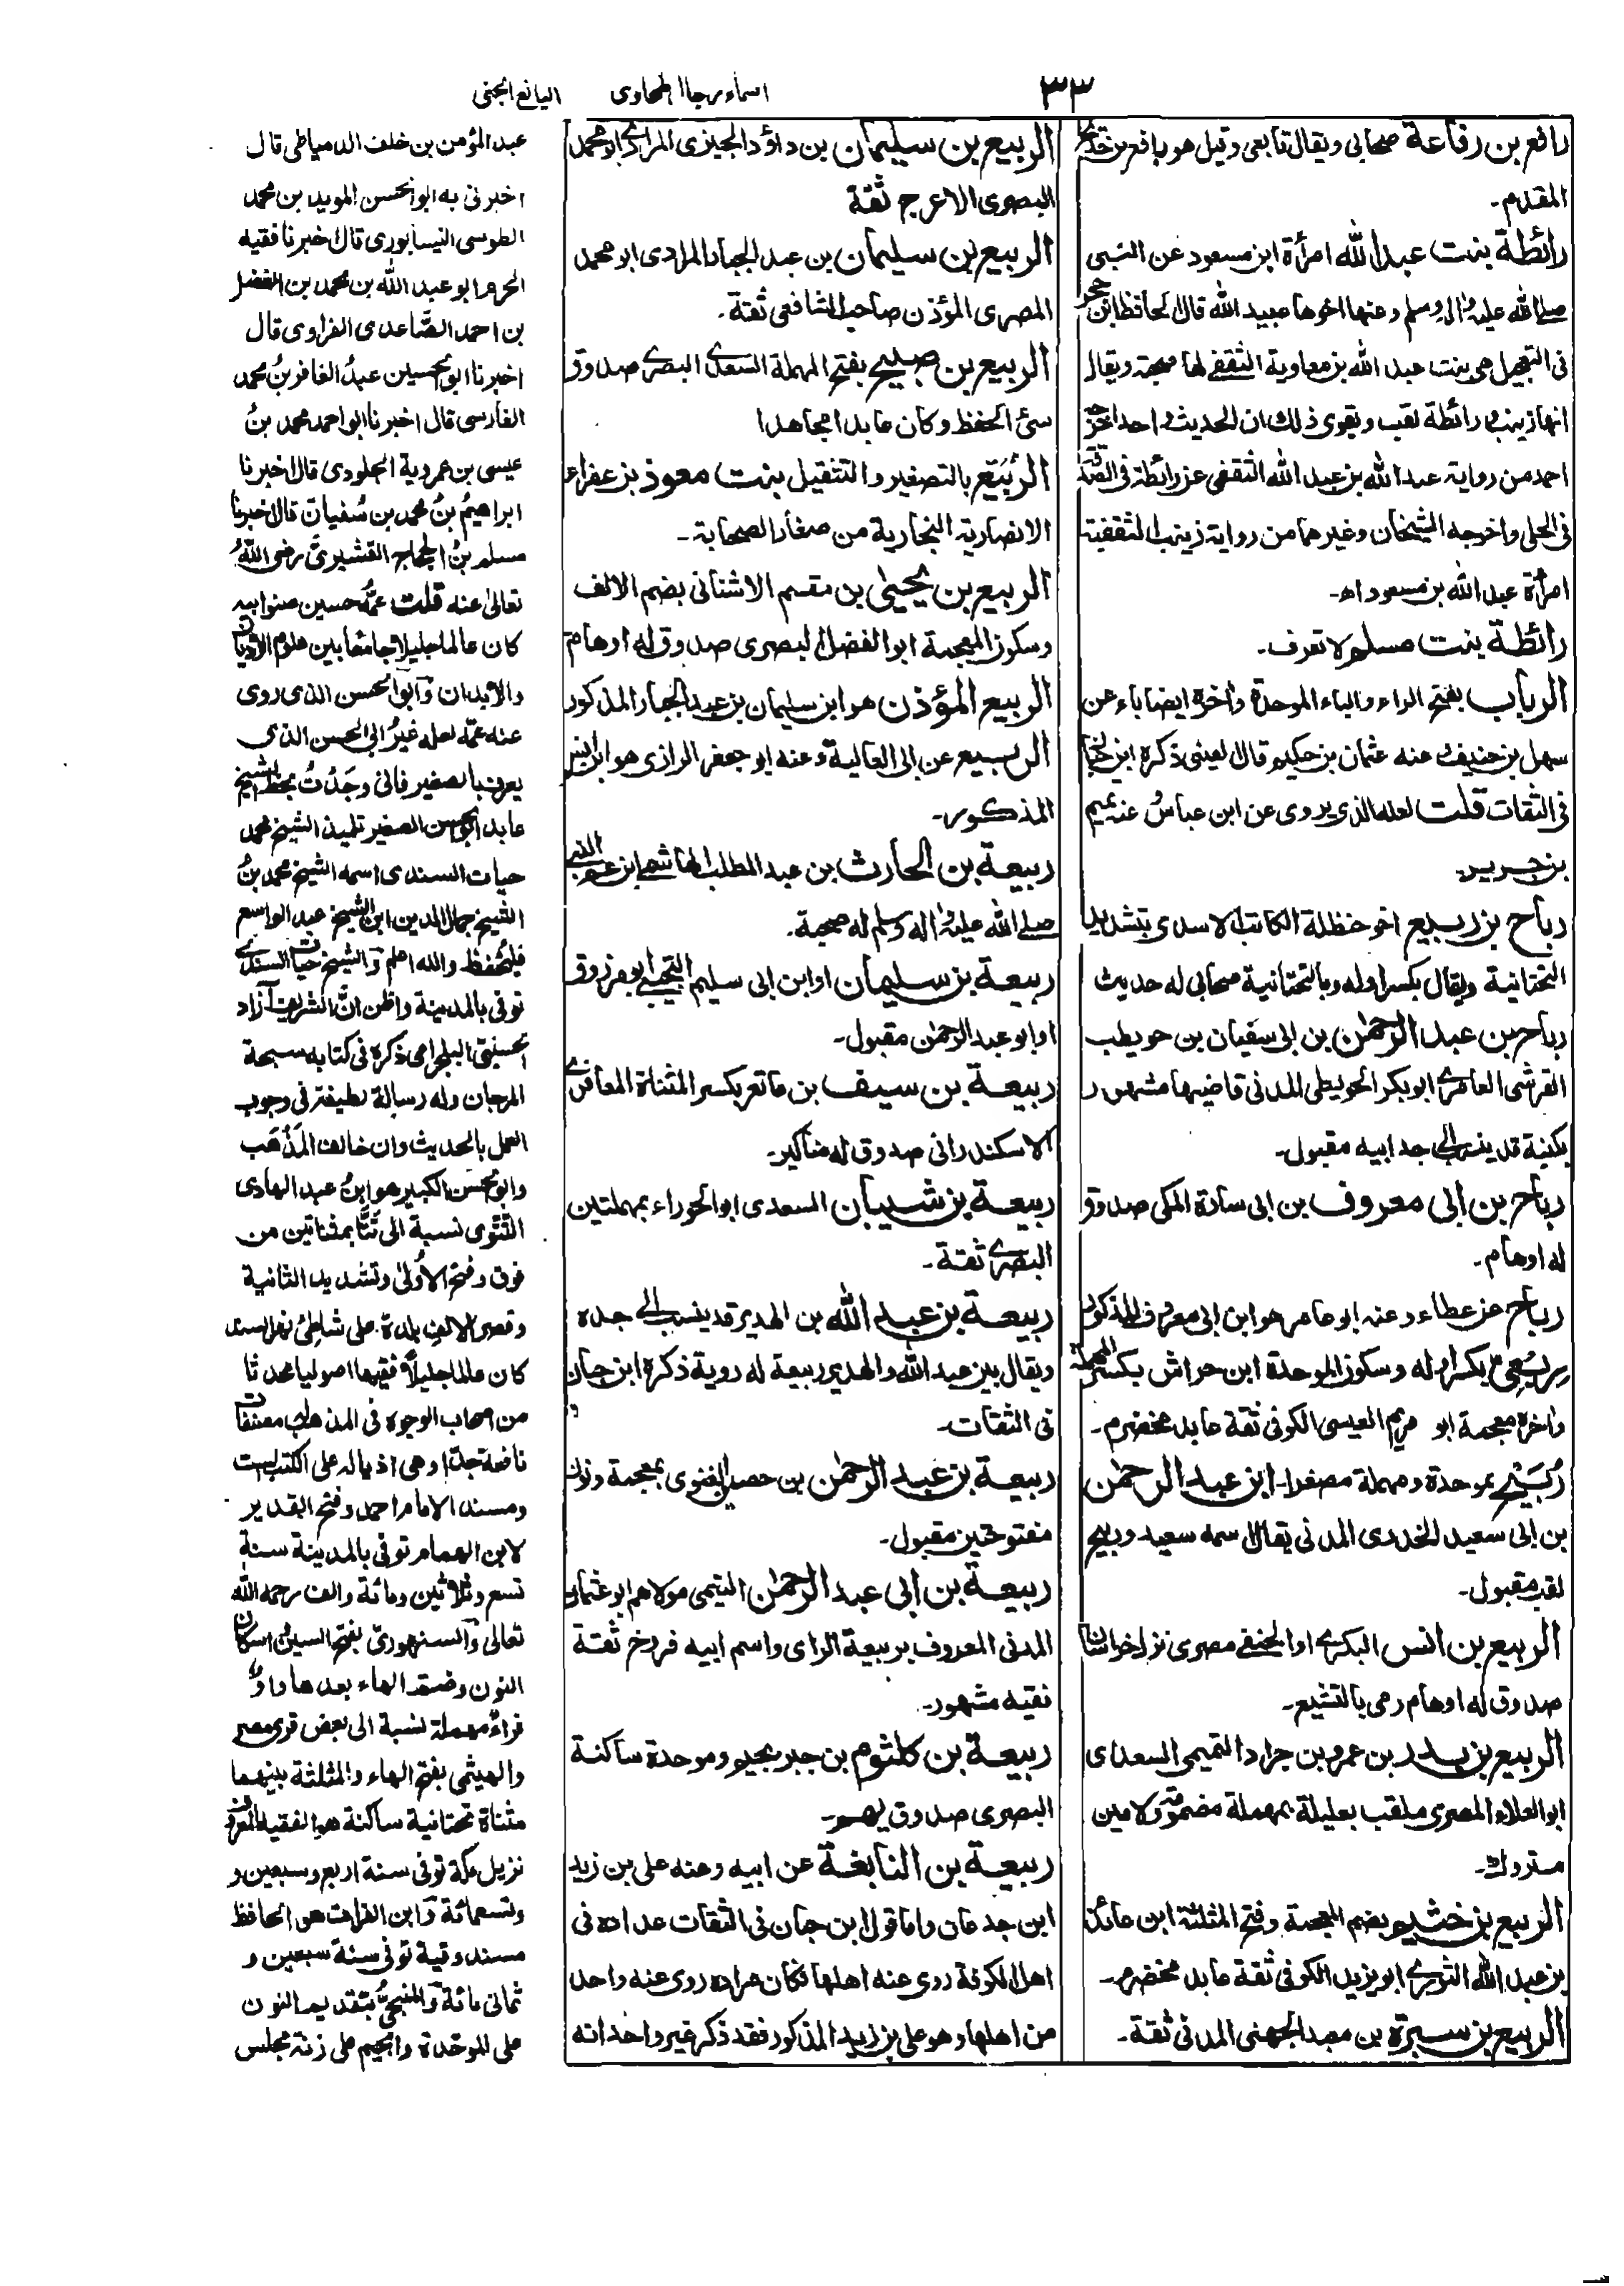 ٣٣
اسماء رجال الطحاوى
اليانع الجنى
رافع بن رفاعة صحابى ويقال تابعى وقيل هو رافع بن خديج
المقدم۔
رائطة بنت عبد الله امرأة ابن مسعود عن النبى
صلى الله عليه واله وسلم وعنها اخوها عبيد الله قال الحافظ ابن حجر
فى التعجيل هى بنت عبد الله بن معاوية الثقفى لها صحبة ويقال
انها زينب و رائطة لقب ويقوى ذلك ان الحديث واحد اخرجه
احمد من رواية عبد الله بن عبد الله الثقفى عن رائطة فى الصدقة
فى الحلى واخرجه الشيخان وغيرهما من رواية زينب الثقفية
امرأة عبد الله بن مسعود اه۔
رائطة بنت مسلم لا تعرف۔
الرباب بفتح الراء والباء الموحدة واخره ايضا باء عن
سهل بن حنيف وعنه عثمان بن حكيم قال العينى ذكره ابن حبان
فى الثقات قلت لعله الذى يروى عن ابن عباس وعنه تميم
بن جرير۔
رباح بن ربيع اخو حنظلة الكاتب الاسدى بتشديد
التحتانية ويقال بكسر اوله وبالتحتانية صحابى له حديث
رباح بن عبد الرحمٰن بن ابى سفيان بن حويطب
القرشى العامرى ابو بكر الحويطبى المدنى قاضيها مشهور
بكنية قد ينسب الى جد ابيه مقبول۔
رباح بن ابى معروف بن ابى سارة المكى صدوق
له اوهام۔
رباح عن عطاء وعنه ابو عامر هو ابن ابى معروف المذكور
رِبعِى بكسر اوله وسكون الموحدة ابن حراش بكسر المهملة
واخره معجمة ابو مريم العبسى الكوفى ثقة عابد مخضرم۔
رُبَيْح بموحدة ومهملة مصغرا۔ ابن عبد الرحمٰن
بن ابى سعيد الخدرى المدنى يقال اسمه سعيد وربيح
لقب مقبول۔
الربيع بن انس البكرى او الحنفى مصرى نزل خراسان
صدوق له اوهام رمى بالتشيع۔
الربيع بن بدر بن عمرو بن جراد التميمى السعدى
ابو العلاء المصرى ملقب بعليلة بمهملة مضمومة ولامين
متروك۔
الربيع بن خثيم بضم المعجمة وفتح المثلثة ابن عائذ
بن عبد الله الثورى ابو يزيد الكوفى ثقة عابد مخضرم۔
الربيع بن سبرة بن معبد الجهنى المدنى ثقة۔
الربيع بن سليمان بن داؤد الجيزى المرادى ابو محمد
البصرى الاعرج ثقة
الربيع بن سليمان بن عبد الجبار المرادى ابو محمد
المصرى المؤذن صاحب الشافعى ثقة۔
الربيع بن صبيح بفتح المهملة السعدى البصرى صدوق
سئ الحفظ وكان عابدا مجاهدا
الرُّبَيِّع بالتصغير والتثقيل بنت معوذ بن عفراء
الانصارية النجارية من صغار الصحابة۔
الربيع بن يحيٰى بن مقسم الاشنانى بضم الالف
وسكون المعجمة ابو الفضل البصرى صدوق له اوهام
الربيع المؤذن هو ابن سليمان بن عبد الجبار المذكور
الربيع عن ابى العالية وعنه ابو جعفر الرازى هو ابن انس
المذكور۔
ربيعة بن الحارث بن عبد المطلب الهاشمى ابن عم النبى
صلى الله عليه واله وسلم له صحبة۔
ربيعة بن سليمان او ابن ابى سليم التجيبى ابو مرزوق
او ابو عبد الرحمٰن مقبول۔
ربيعة بن سيف بن ماتع بكسر المثناة المعافرى
الاسكندرانى صدوق له مناكير۔
ربيعة بن شيبان السعدى ابو الحوراء بمهملتين
البصرى ثقة۔
ربيعة بن عبد الله بن الهدير قد ينسب الى جده
ويقال بين عبد الله والهدير ربيعة له روية ذكره ابن حبان
فى الثقات۔
ربيعة بن عبد الرحمٰن بن حصن الغنوى بمعجمة ونون
مفتوحتين مقبول۔
ربيعة بن ابى عبد الرحمٰن التيمى مولاهم ابو عثمان
المدنى المعروف بربيعة الراى واسم ابيه فروخ ثقة
فقيه مشهور۔
ربيعة بن كلثوم بن جبر بجيم وموحدة ساكنة
البصرى صدوق يهم۔
ربيعة بن النابغة عن ابيه وعنه على بن زيد
ابن جدعان واما قول ابن حبان فى الثقات عداده فى
اهل الكوفة روى عنه اهلها فكان مراده روى عنه واحد
من اهلها وهو على بن زيد المذكور فقد ذكر غير واحد انه
عبد المؤمن بن خلف الدمياطى قال
اخبرنى به ابو الحسن المويد بن محمد
الطوسى النيسابورى قال اخبرنا فقيه
الحرم ابو عبد الله بن محمد بن الفضل
بن احمد الصَّاعدى الفراوى قال
اخبرنا ابو الحسين عبدُ الغافر بنُ محمد
الفارسى قال اخبرنا ابو احمد محمد بنُ
عيسى بن عمروية الجلودى قال اخبرنا
ابراهيمُ بنُ محمد بن سُفيان قال اخبرنا
مسلم بنُ الحجاج القشيرىُّ رضى اللّٰهُ
تعالىٰ عنه قلت عمُّه حسين صنو ابيه
كان عالما جليلا جامعا بين علوم الاديان
والابدان وآبو الحسن الذى روى
عنه عمّه لعله غيرُ ابى الحسن الذى
يعرف بالصغير فانى وجَدْتُ بخط الشيخ
عابد ابو الحسن الصغير تلميذ الشيخ محمد
حيات السندى اسمه الشيخ محمد بنُ
الشيخ جمال الدين ابن الشيخ عبد الواسع
فليُحفظ والله اعلم وآلشيخ حيات السندى
توفى بالمدينة واظن انَّ الشريف آزاد
الحسينىّ البلجرامى ذكره فى كتابه سبحة
المرجان وله رسالة لطيفة فى وجوب
العمل بالحديث وان خالف المَذْهَب
وابو الحسن الكبير هو ابنُ عبد الهادى
التتَّوى نسبة الى تَتَّا بمثناتين من
فوق وفتح الأولىٰ وتشديد الثانية
وقصر الالف بلدة على شاطئ نهر السند
كان عالما جليلًا فقيها اصوليا محدثا
من اصحاب الوجوه فى المذهب له مصنفات
نافعة جدّا وهى اذياله على الكتب الست
ومسند الامام احمد وفتح القدير
لابن الهمام توفى بالمدينة سنة
تسع وثلاثين ومائة والف رحمه الله
تعالى وآلسنهورىّ بفتح السين واسكان
النون وضمّ الهاء بعدها واوٌ
فراءٌ مهملة نسبة الى بعض قرى مصر
والهيثمى بفتح الهاء والمثلثة بينهما
مثناة تحتانية ساكنة هو الفقيه المعروف
نزيل مكة توفى سنة اربع وسبعين و
وتسعمائة وآبن الفرات هو الحافظ
مسند وقته توفى سنة سبعين و
ثمانى مائة وآلمنبجىُّ بتقديم النون
على الموحّدة والجيم على زنة مجلس